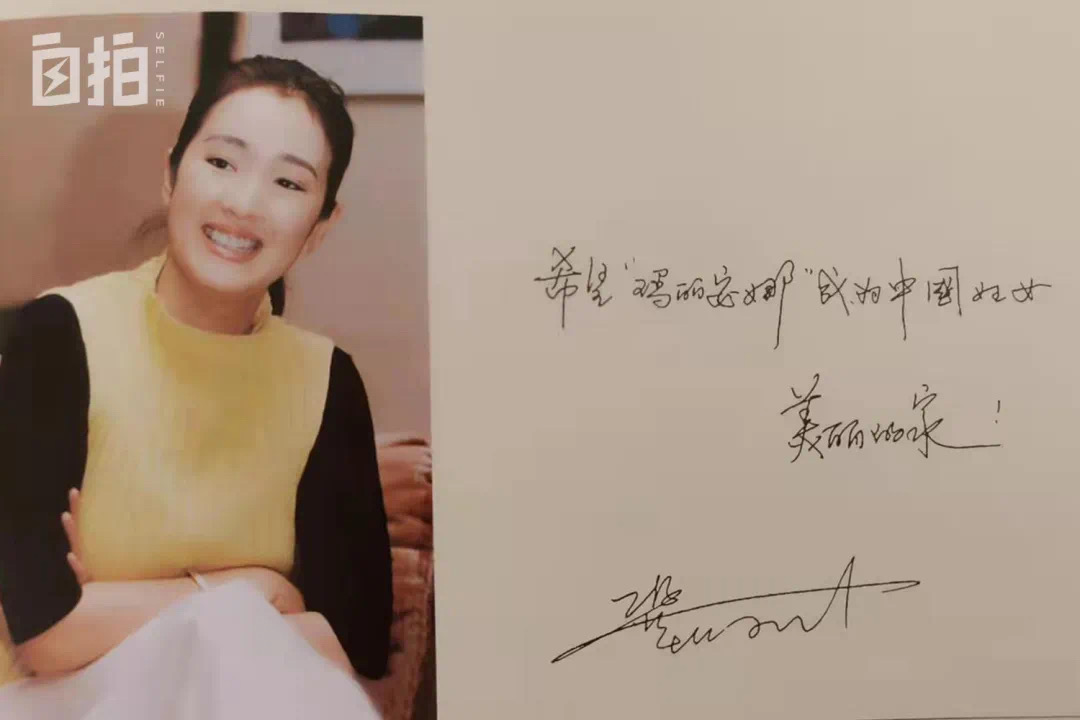 自拍
SELFIE
希望“玛丽安娜”成为中国妇女
美丽的家!